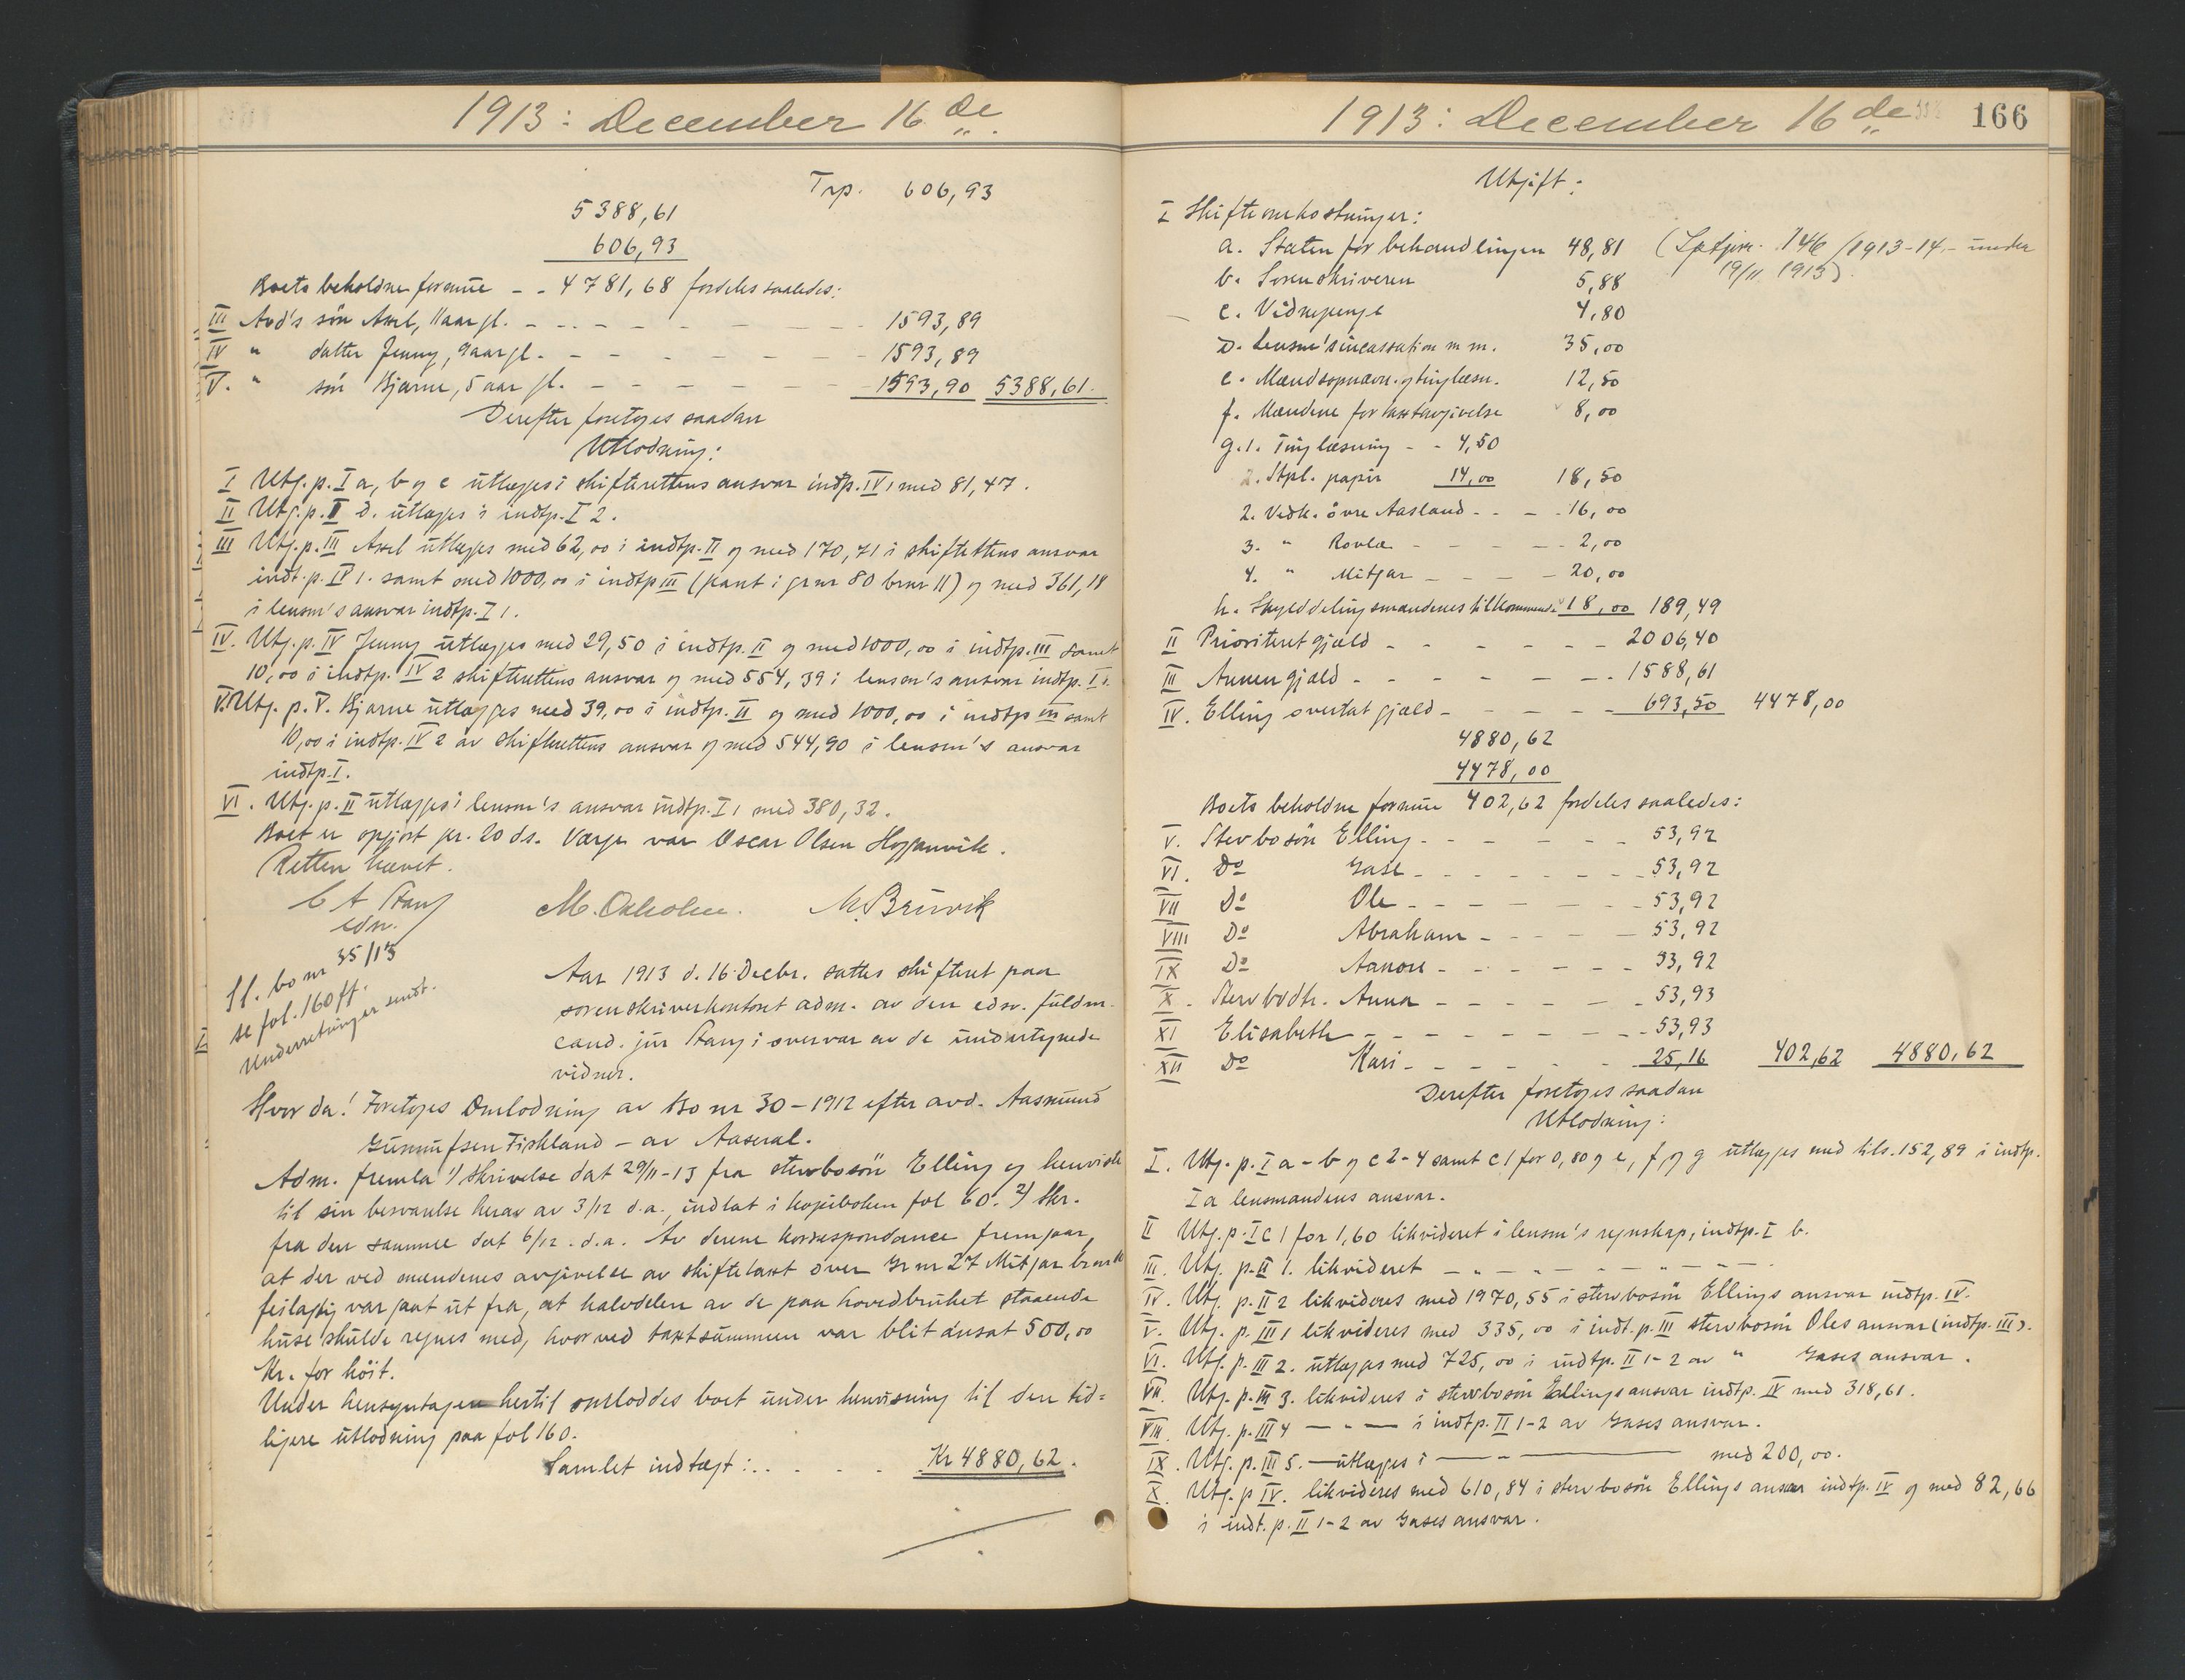 1913: December 16 de
Trp. 606,93
5388,61
606,93
Boets beholdne formue - - 4781,68 fordeles saaledes:
III Avd's sön Axel, 11 aar gl. - - - 1593,89
IV " datter Jenny, 9 aar gl. - - - 1593,89
V. " sön Bjarne, 5 aar gl. - - - 1593,90 5388,61.
Derefter foretoges saadan
Utlodning:
I Utg. p. I a, b og c utlægges i skifterettens ansvar indtp. IV 1 med 81,47.
II Utg. p. II d. utlægges i indtp. I 2.
III Utg. p. III Axel utlægges med 62,00 i indtp. II og med 170,71 i skifterettens ansvar
indt. p. IV 1. samt med 1000,00 i indtp III (pant i gr nr 80 br nr 11) og med 361,18
i lensm's ansvar indtp. I 1.
IV. Utg. p. IV Jenny utlægges med 29,50 i indtp. II og med 1000,00 i indtp. III samt
10,00 i indtp. IV 2 skifterettens ansvar og med 554,39 i lensm's ansvar indtp. I 1.
V. Utg. p. V. Bjarne utlægges med 39,00 i indtp. II og med 1000,00 i indtp III samt
10,00 i indtp. IV 2 av skifterettens ansvar og med 544,90 i lensm's ansvar
indtp. I.
VI. Utg. p. II utlægges i lensm's ansvar indtp. I 1 med 380,32.
Boet er opgjort pr. 20 ds. Værge var Oscar Olsen Høgganvik.
Retten hævet.
C A Stang
edsv.
M. Oxholm. M. Bruvik
Sl. bo nr 35/13
se fol. 160 ff.
Underretninger sendt.
Aar 1913 d. 16 Decbr. sattes skifteret paa
sorenskriverkontoret adm. av den edsv. fuldm.
cand. jur Stang i overvær av de undertegnede
vidner.
Hvor da! Foretoges Omlodning av Bo nr 30 - 1912 efter avd. Aasmund
Gunnufsen Fiskland - av Aaseral.
Adm. fremla 1) skrivelse dat 29/11-13 fra stervbosön Elling og henviste
til sin besvarelse herav av 3/12 d.a., indtat i kopiboken fol 60. 2) Skr.
fra den samme dat 6/12. d.a. Av denne korrespondance fremgaar,
at der ved mændenes avgivelse av skiftetaxt over Gr nr 27 Mitgar br nr
feilagtig var gaat ut fra, at halvdelen av de paa hovedbruket staaende
huse skulde regnes med, hvorved taxtsummen var blit ansat 500,00
Kr. for höit.
Under hensyntagen hertil omloddes boet under henvisning til den tid=
ligere utlodning paa fol 160.
Samlet indtægt: . . . . Kr 4880,62.
1913: December 16 de 166
Utgift:
I Skifteomkostninger:
a. Staten for behandlingen 48,81 (Spfjoru. 146/1913-14 - under
b. Sorenskriveren 5,88 19/11 1913).
c. Vidnepenge 4,80
d. Lensm's incassation m m. 35,00
e. Mændsopnævn. og tinglæsn. 12,50
f. Mændene for taxtavgivelse 8,00
g. 1. Tinglæsning - - 4,50
2. Stpl. papir 14,00 18,50
2. Vedk. övre Aasland - - - 16,00
3. " Rovla - - - - 2,00
4. " Mitgar - - - 20,00
h. Skylddelingsmændenes tilkommende 18,00 189,49
II Prioritert gjæld - - - - - - 2006,40
III Annen gjæld - - - - - - 1588,61
IV. Elling overtat gjæld - - - - 693,50 4478,00
4880,62
4478,00
Boets beholdne formue 402,62 fordeles saaledes:
V. Stervbosön Elling - - - - - 53,92
VI. Do Gase - - - - - - 53,92
VII Do Ole - - - - - - 53,92
VIII Do Abraham - - - - 53,92
IX Do Aanon - - - - - 53,92
X. Stervbodtr. Anna - - - - - 53,93
XI Elisabeth - - - - - - 53,93
XII Do Kari - - - - - 25,16 402,62 4880,62
Derefter foretoges saadan
Utlodning:
I. Utg. p. I a - b og c 2-4 samt c 1 for 0,80 og e, f og g utlægges med tils. 152,89 i indtp.
I a lensmandens ansvar.
II Utg. p. I c 1 for 1,60 likvideret i lensm's regnskap, indtp. I b.
III. Utg. p. II 1. likvideret - " - " - " -
IV. Utg. p. II 2 likvideres med 1970,55 i stervbosön Ellings ansvar indtp. IV.
V. Utg. p. III 1 likvideres med 335,00 i indt. p. III stervbosön Oles ansvar (indtp. III).
VI. Utg. p. III 2. utlægges med 725,00 i indtp. II 1-2 av " Gases ansvar.
VII. Utg. p. III 3. likvideres i stervbosön Ellings ansvar indtp. IV med 318,61.
VIII. Utg. p. III 4 - " - i indtp. II 1-2 av Gases ansvar.
IX. Utg. p. III 5. - utlægges i - " - med 200,00.
X. Utg. p IV. likvideres med 610,84 i stervbosön Ellings ansvar indtp. IV og med 82,66
i indt. p. II 1-2 av Gases ansvar.